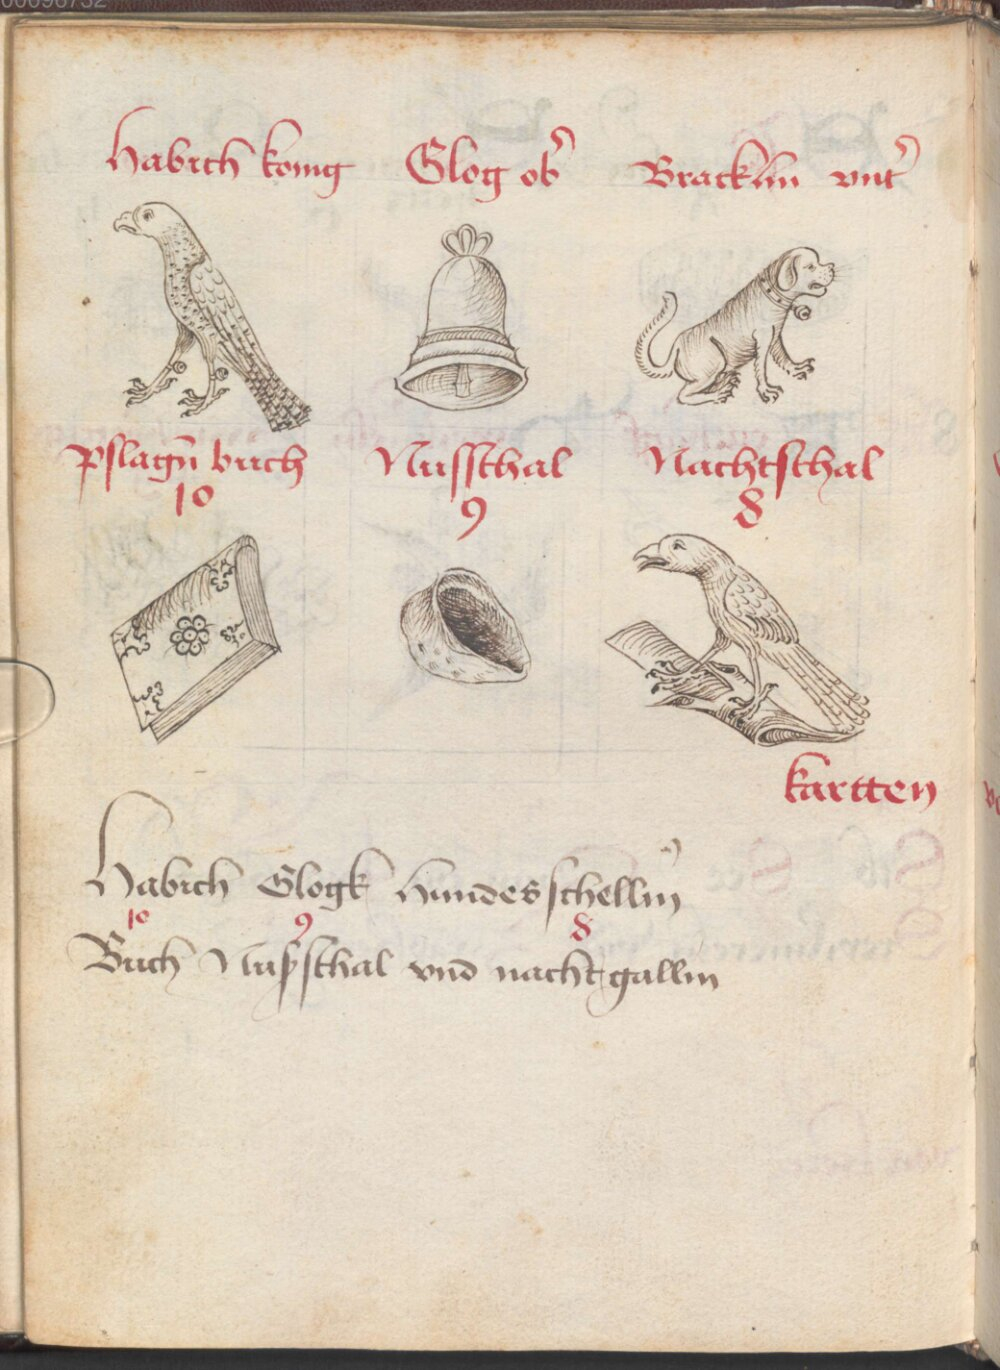 Habich konig Glog ob͛ Bracklin vnt͛
pslagn̄ buch Nussschal Nachtschal
10 9 8
kartten
Habich Glogk Hundesschellin
10 9 8
Buch Nusschal vnd nachtgallin